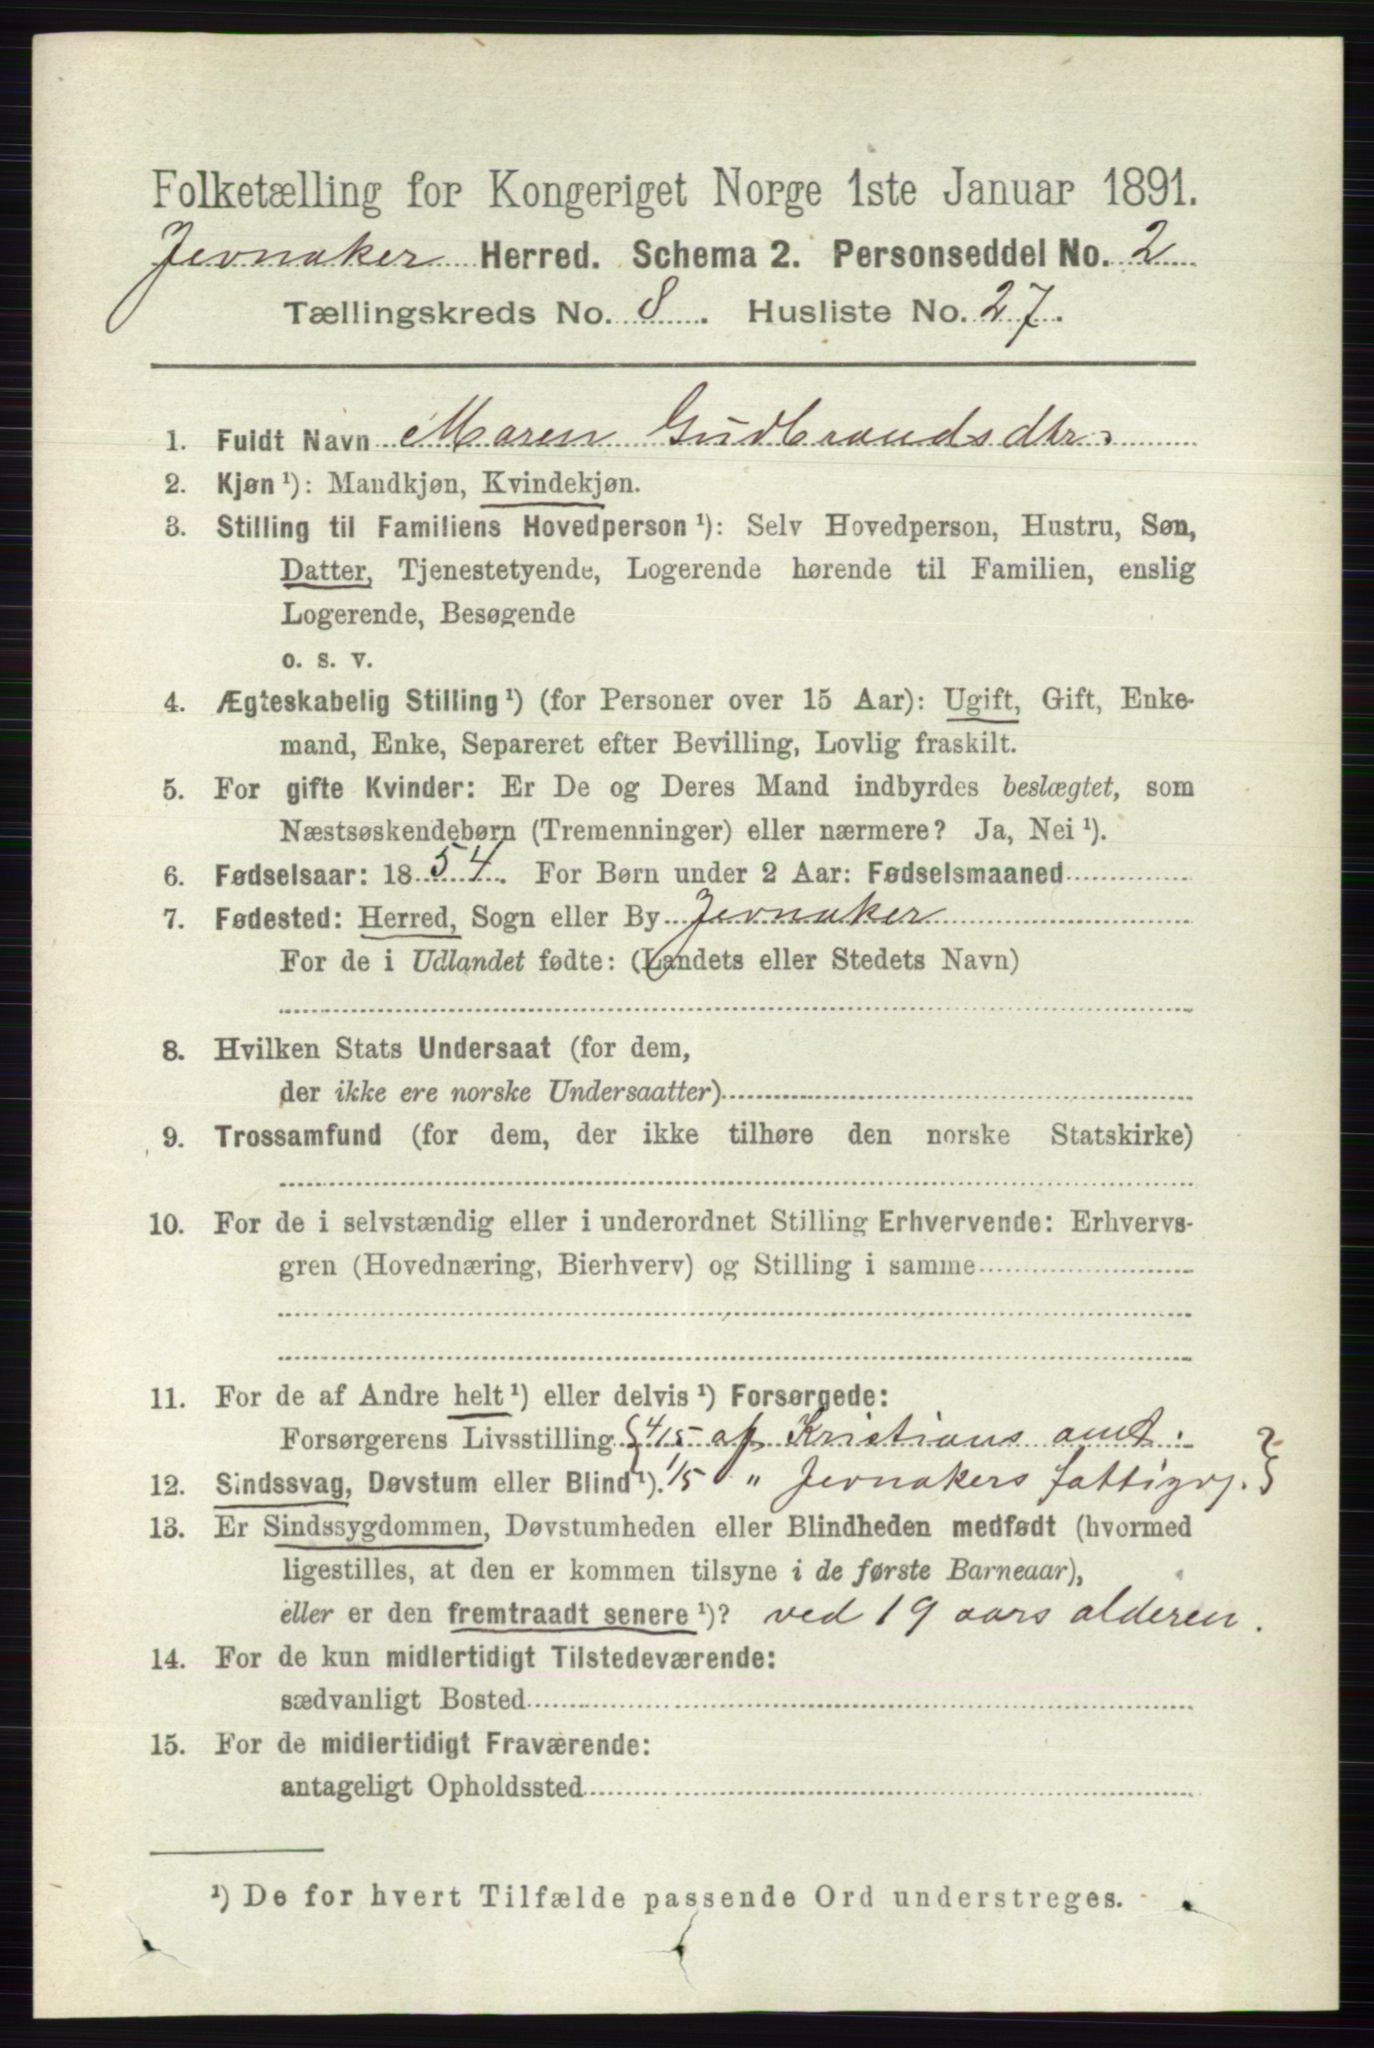 Folketælling for Kongeriget Norge 1ste Januar 1891.
Jevnaker Herred. Schema 2. Personseddel No. 2
Tællingskreds No. 8. Husliste No. 27.
1. Fuldt Navn Maren Gudbrandsdtr.
2. Kjøn ¹): Mandkjøn, Kvindekjøn.
3. Stilling til Familiens Hovedperson ¹): Selv Hovedperson, Hustru, Søn,
Datter, Tjenestetyende, Logerende hørende til Familien, enslig
Logerende, Besøgende
o. s. v.
4. Ægteskabelig Stilling ¹) (for Personer over 15 Aar): Ugift, Gift, Enke-
mand, Enke, Separeret efter Bevilling, Lovlig fraskilt.
5. For gifte Kvinder: Er De og Deres Mand indbyrdes beslægtet, som
Næstsøskendebørn (Tremenninger) eller nærmere? Ja, Nei ¹).
6. Fødselsaar: 1854. For Børn under 2 Aar: Fødselsmaaned
7. Fødested: Herred, Sogn eller By Jevnaker
For de i Udlandet fødte: (Landets eller Stedets Navn)
8. Hvilken Stats Undersaat (for dem,
der ikke ere norske Undersaatter)
9. Trossamfund (for dem, der ikke tilhøre den norske Statskirke)
10. For de i selvstændig eller i underordnet Stilling Erhvervende: Erhvervs-
gren (Hovednæring, Bierhverv) og Stilling i samme
11. For de af Andre helt ¹) eller delvis ¹) Forsørgede:
Forsørgerens Livsstilling {4/5 af Kristians amt.
12. Sindssvag, Døvstum eller Blind ¹). 1/5 " Jevnakers fattigv. }
13. Er Sindssygdommen, Døvstumheden eller Blindheden medfødt (hvormed
ligestilles, at den er kommen tilsyne i de første Barneaar),
eller er den fremtraadt senere ¹)? ved 19 aars alderen.
14. For de kun midlertidigt Tilstedeværende:
sædvanligt Bosted
15. For de midlertidigt Fraværende:
antageligt Opholdssted
¹) De for hvert Tilfælde passende Ord understreges.